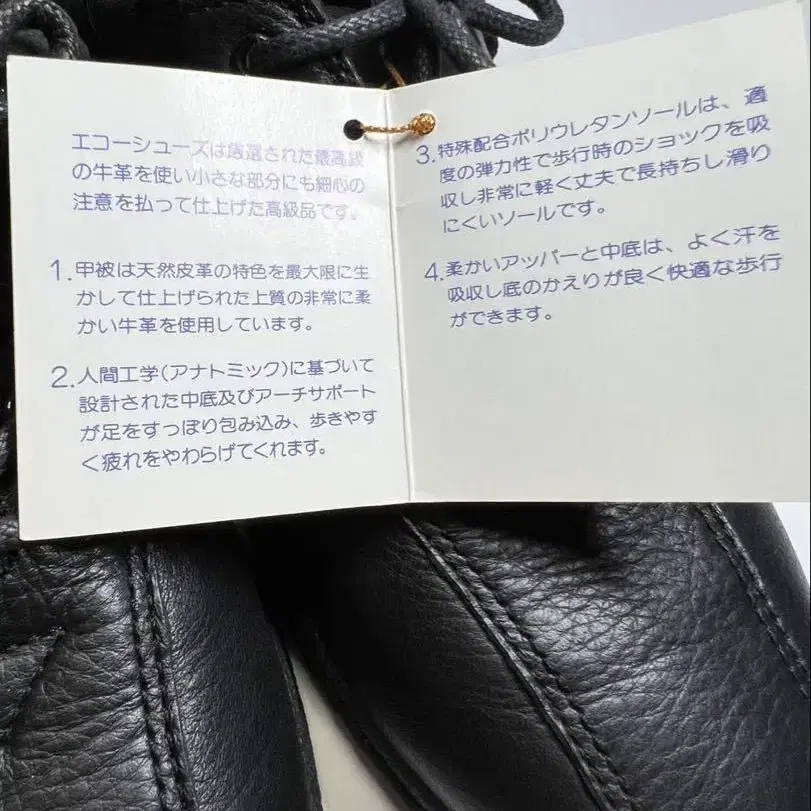 エコーシューズは厳選された最高級
の牛革を使い小さな部分にも細心の
注意を払って仕上げた高級品です。
1.甲被は天然皮革の特色を最大限に生
かして仕上げられた上質の非常に柔
かい牛革を使用しています。
2.人間工学(アナトミック)に基づいて
設計された中底及びアーチサポート
が足をすっぽり包み込み、歩きやす
く疲れをやわらげてくれます。
3.特殊配合ポリウレタンソールは、適
度の弾力性で歩行時のショックを吸
収し非常に軽く丈夫で長持ちし滑り
にくいソールです。
4.柔かいアッパーと中底は、よく汗を
吸収し底のかえりが良く快適な歩行
ができます。